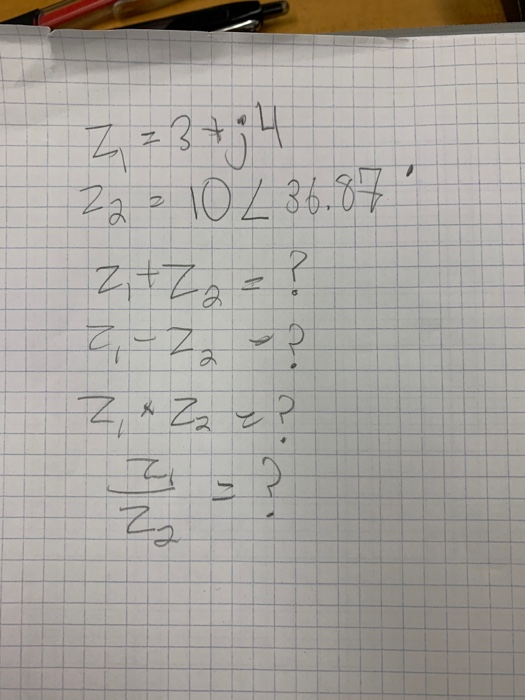 Z₁ = 3 + j4
Z₂ = 10 ∠ 36.87°
Z₁ + Z₂ = ?
Z₁ - Z₂ = ?
Z₁ × Z₂ = ?
Z₁/Z₂ = ?